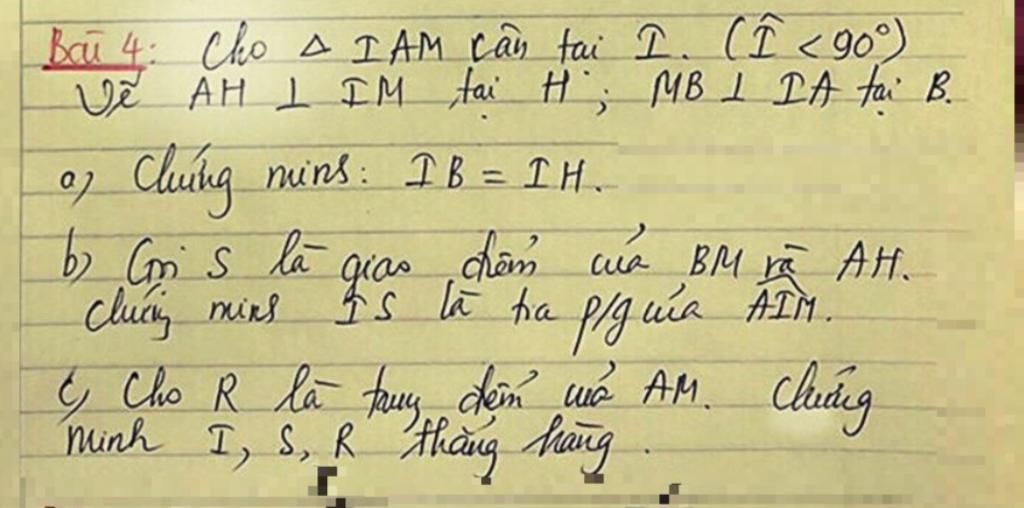 Bài 4: Cho Δ IAM cân tại I. (Î < 90°)
Vẽ AH ⊥ IM tại H ; MB ⊥ IA tại B.
a) Chứng minh: IB = IH.
b) Gọi S là giao điểm của BM và AH.
Chứng minh IS là tia p/g của AÎM.
c) Cho R là trung điểm của AM. Chứng
minh I, S, R thẳng hàng.